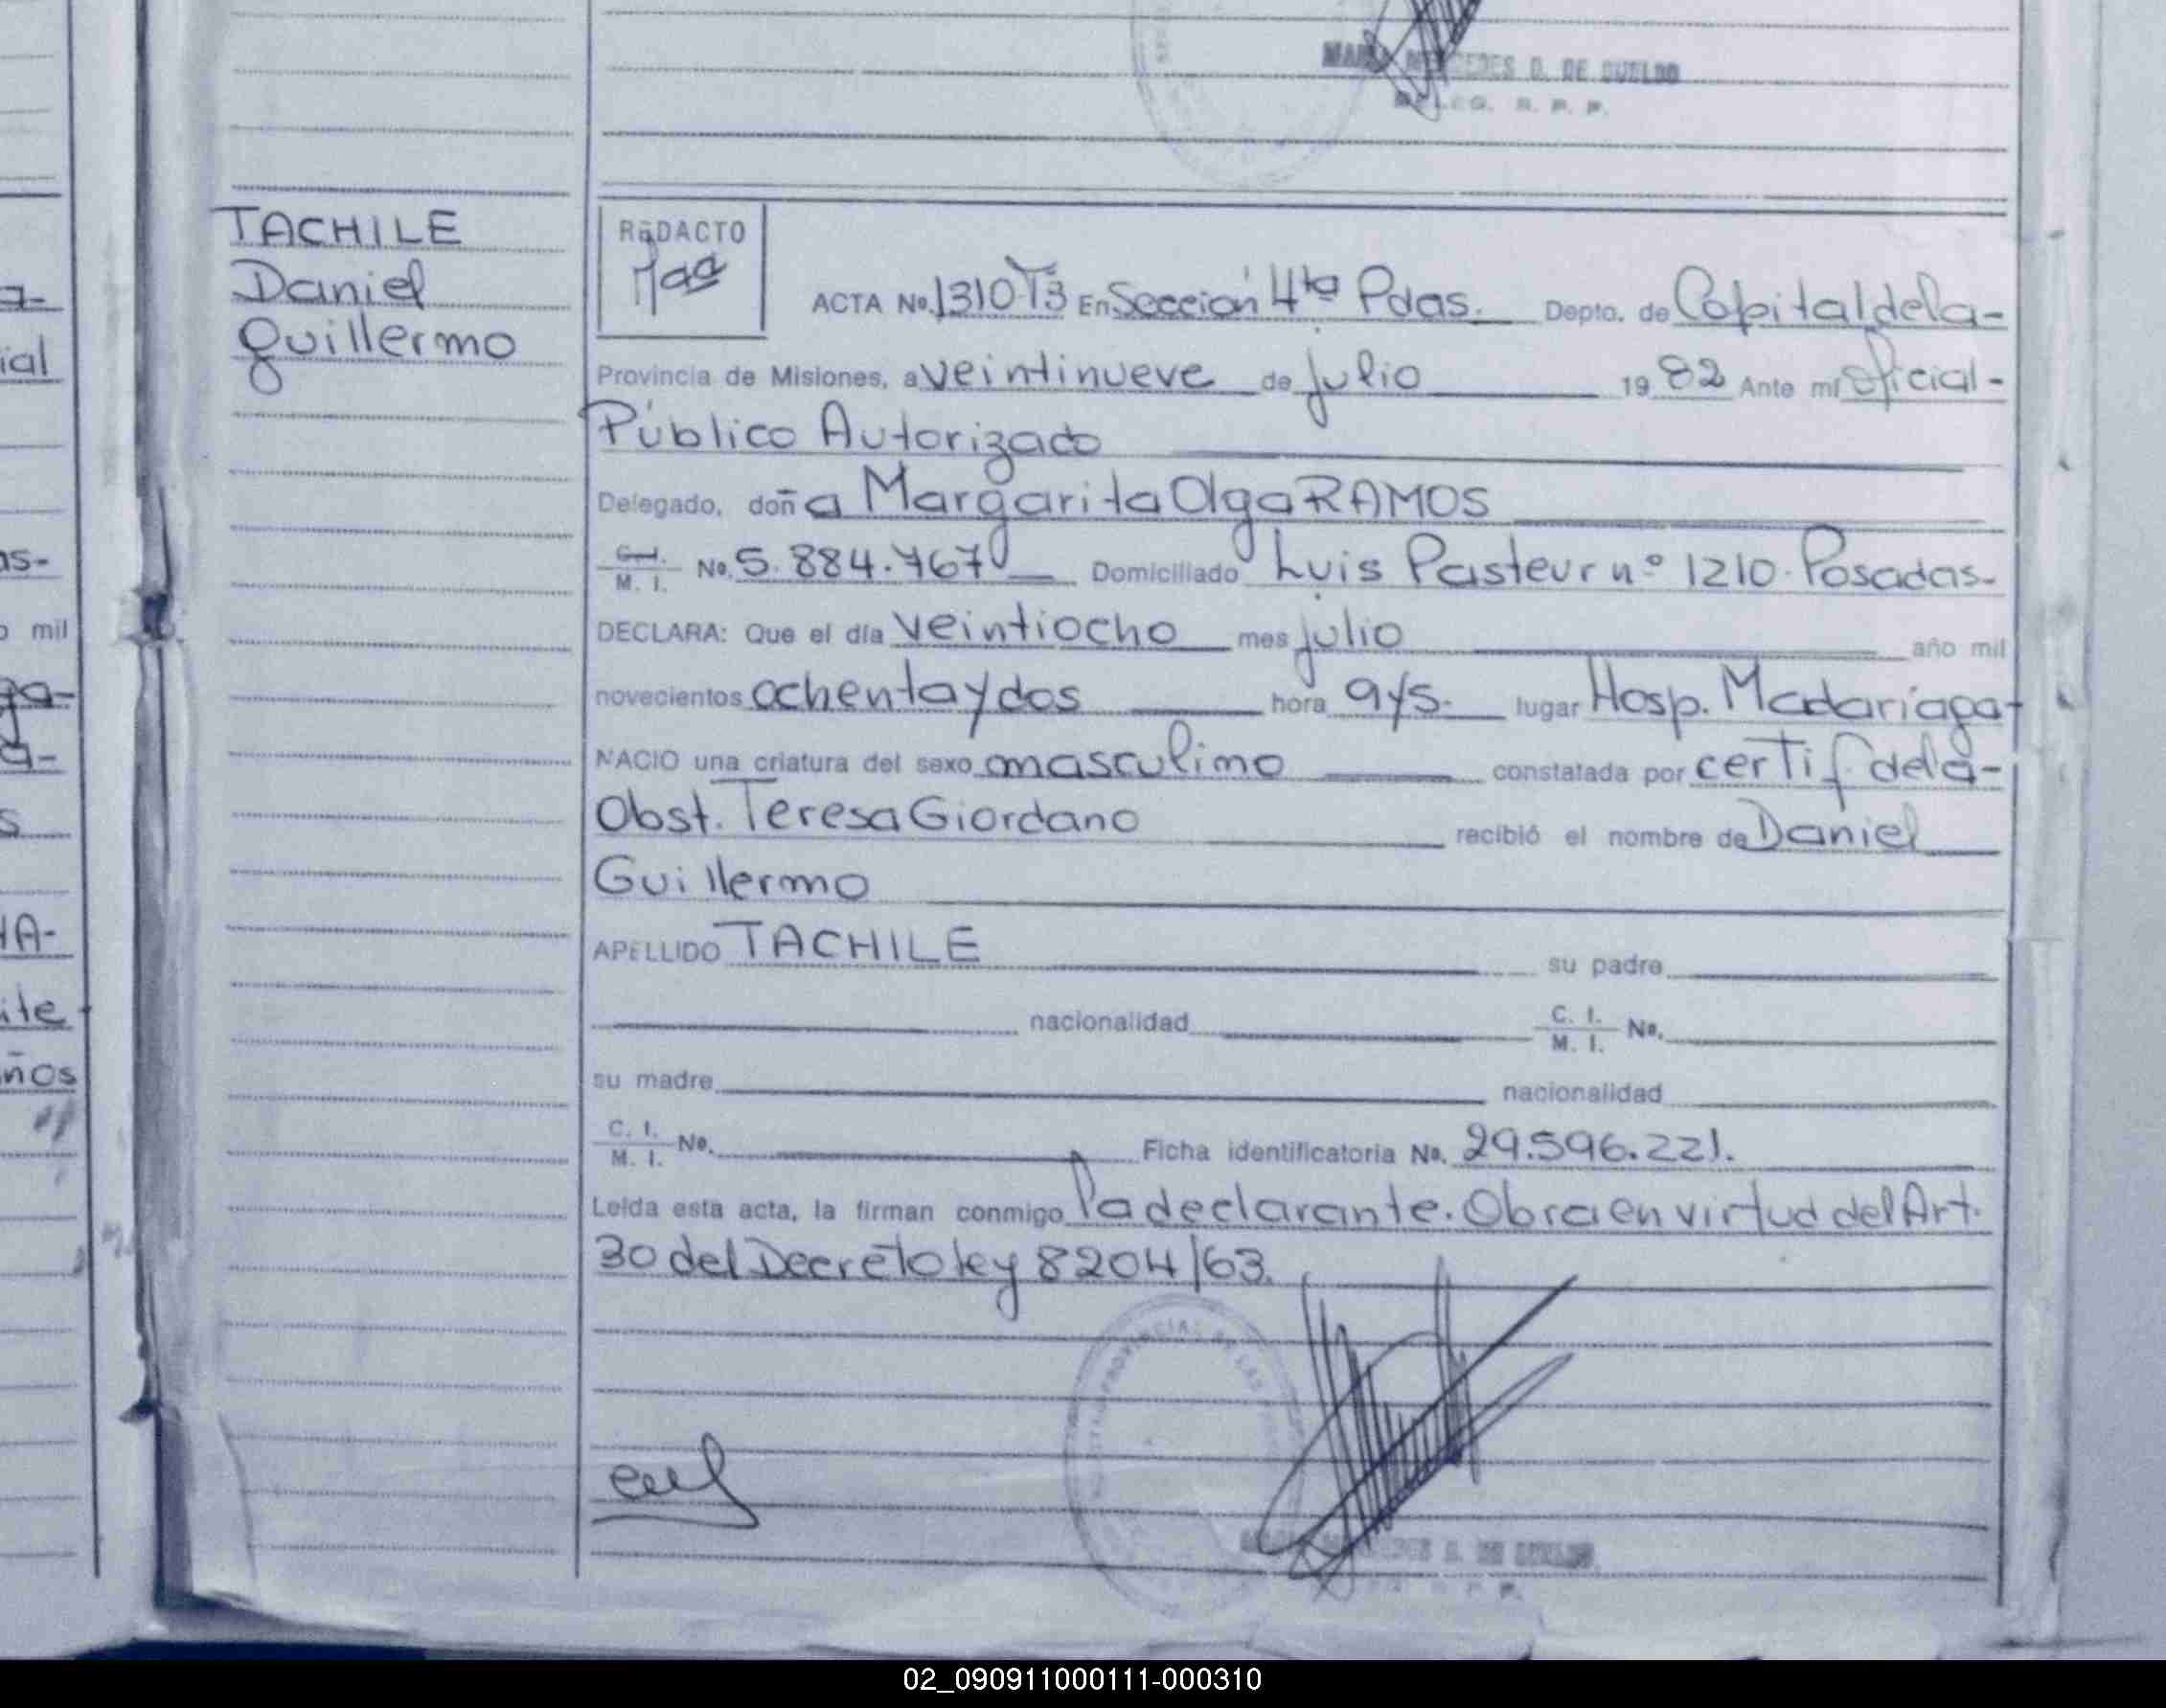 MARIA MERCEDES D. DE SUELDO
DELEG. R. P. P.
TACHILE
Daniel
Guillermo
REDACTO
ACTA No. 1310 T3 En Sección 4ta Pdas. Depto. de Capital de la-
Provincia de Misiones, a veintinueve de julio 1982 Ante mí Oficial-
Público Autorizado
Delegado, doña Margarita Olga RAMOS
C. I. M. I. No. 5.884.767 Domiciliado Luis Pasteur nº 1210-Posadas-
DECLARA: Que el día veintiocho mes julio año mil
novecientos ochenta y dos hora 9 y 5. lugar Hosp. Madariaga-
NACIO una criatura del sexo masculino constatada por certif. de la-
Obst. Teresa Giordano recibió el nombre de Daniel
Guillermo
APELLIDO TACHILE su padre
nacionalidad C. I. M. I. No.
su madre nacionalidad
C. I. M. I. No. Ficha identificatoria No. 29.596.221.
Leída esta acta, la firman conmigo la declarante. Obra en virtud del Art.
30 del Decreto ley 8204/63.
PROVINCIAL DE LAS
MERCEDES D. DE SUELDO
as-
o mil
ños
02_090911000111-000310